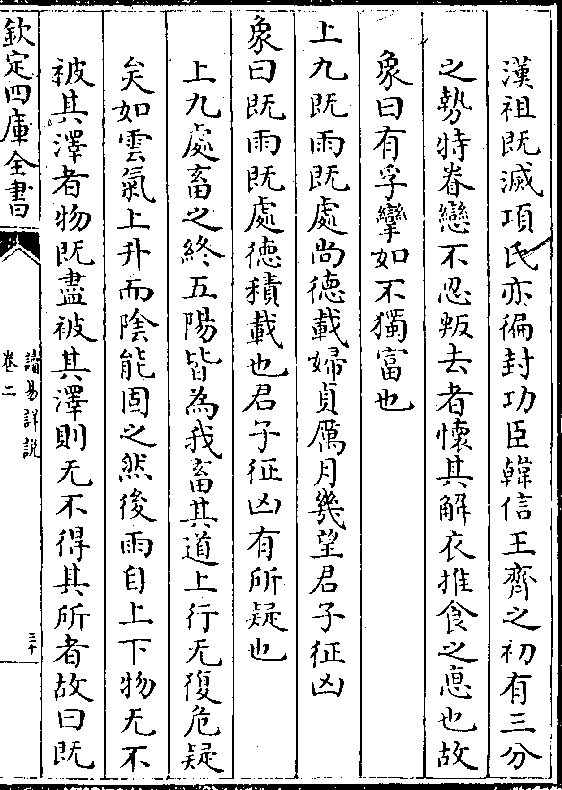 漢祖既滅項氏亦徧封功臣韓信王齊之初有三分
之勢特眷戀不忍叛去者懷其解衣推食之恩也故
象曰有孚攣如不獨富也
上九既雨既處尚德載婦貞厲月幾望君子征凶
象曰既雨既處德積載也君子征凶有所疑也
上九處畜之終五陽皆為我畜其道上行无復危疑
矣如雲氣上升而陰能固之然後雨自上下物无不
被其澤者物既盡被其澤則无不得其所者故曰既
欽定四庫全書
讀易詳說
卷二
三十